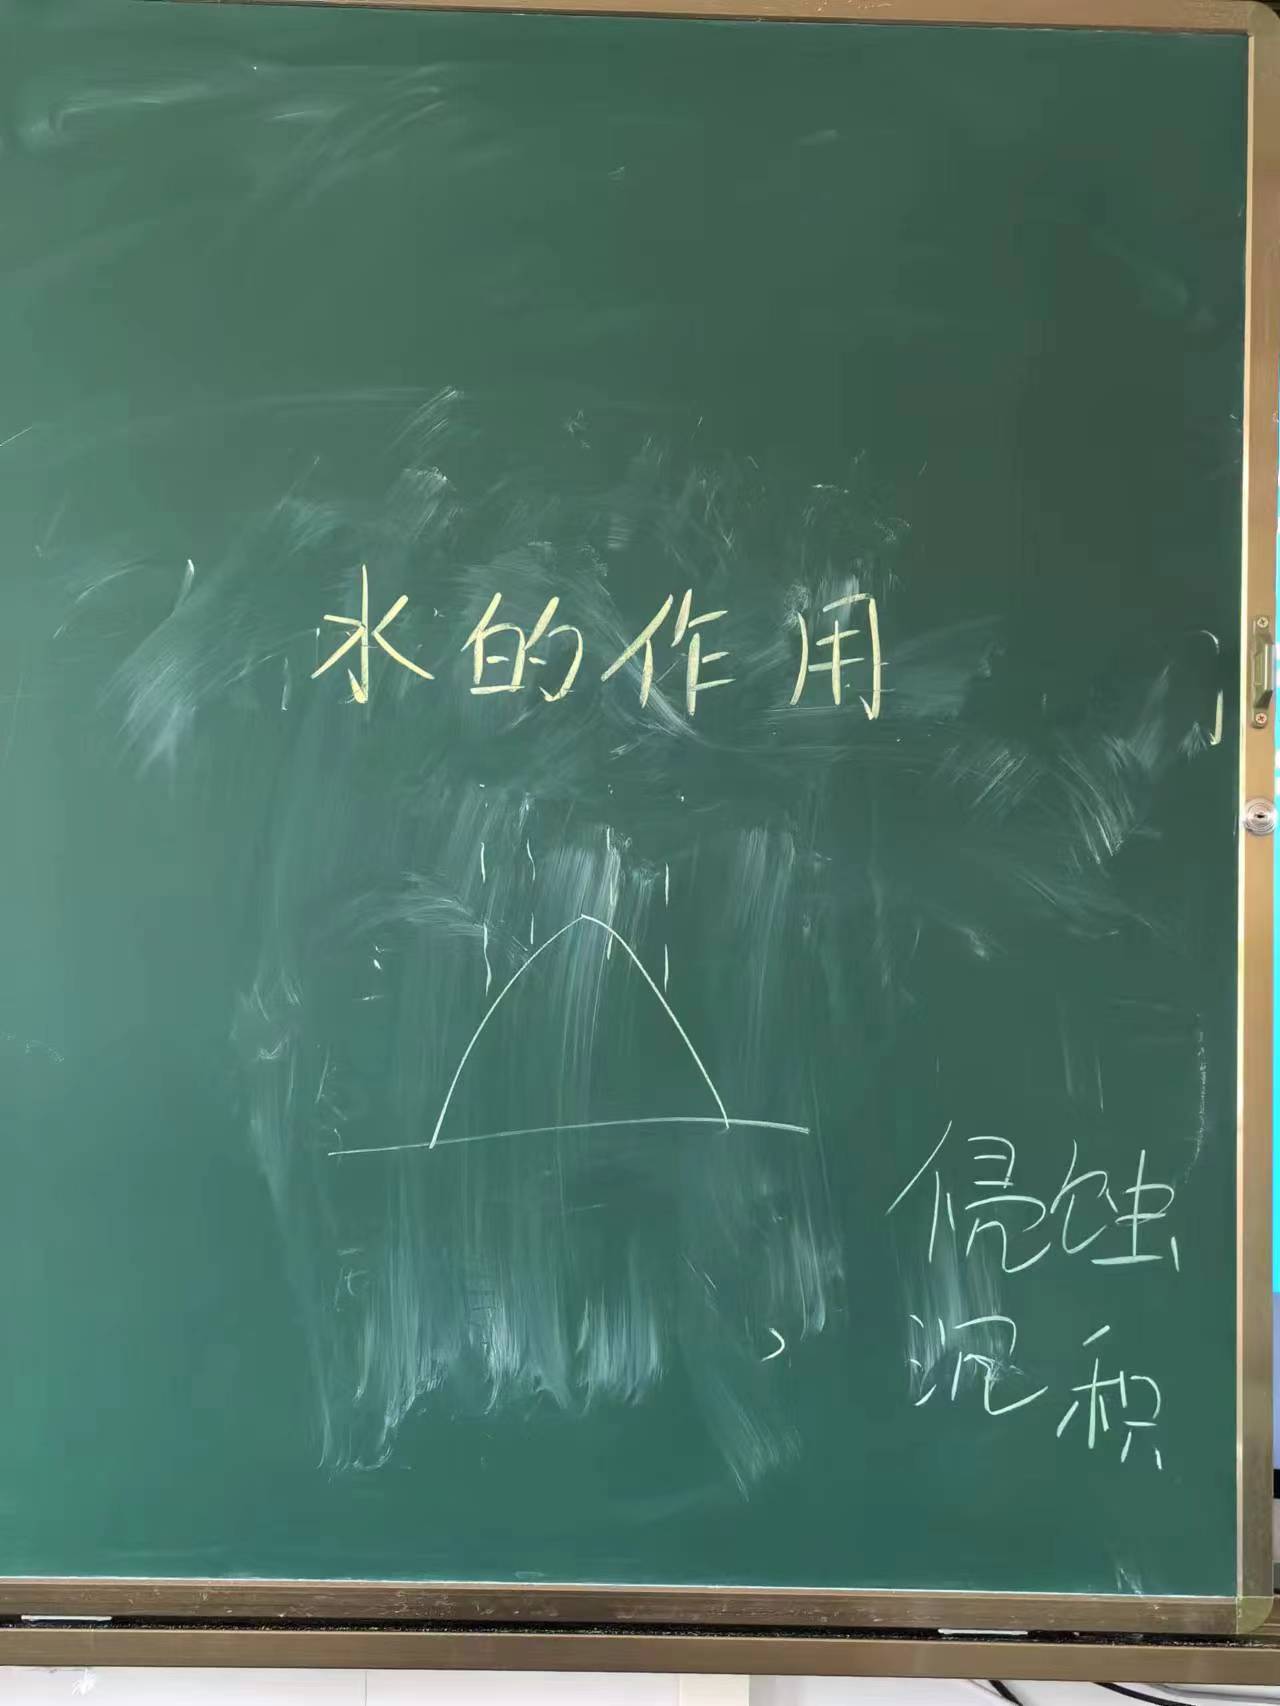 水的作用
侵蚀
沉积